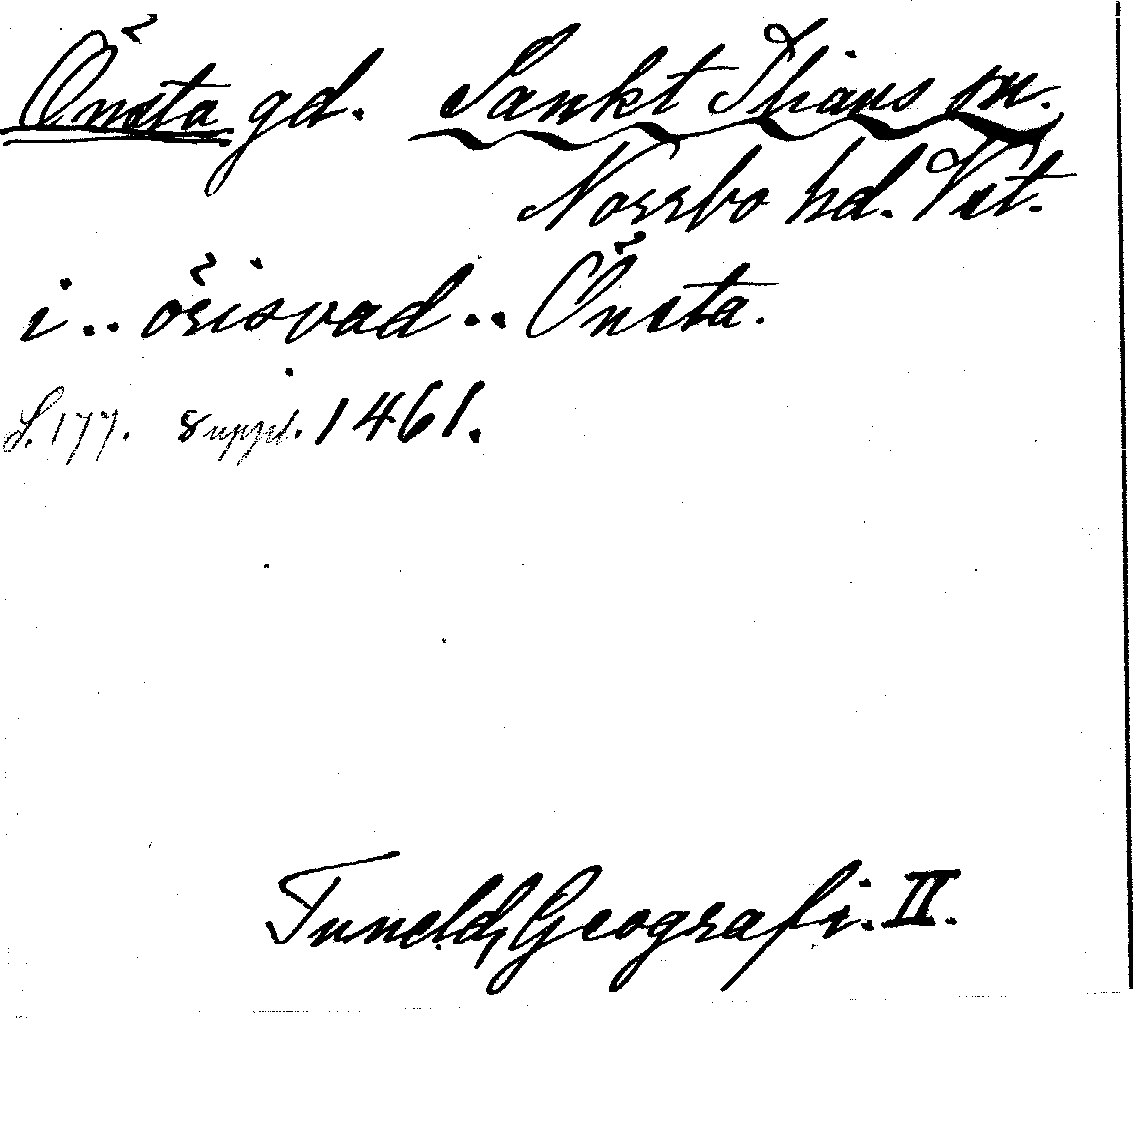 Önsta gd. Sankt Ilians sn.
Norrbo hd. Vst.
i.. örisvad.. Önsta.
S. 177. Suppl. 1461.
Tuneld, Geografi. II.